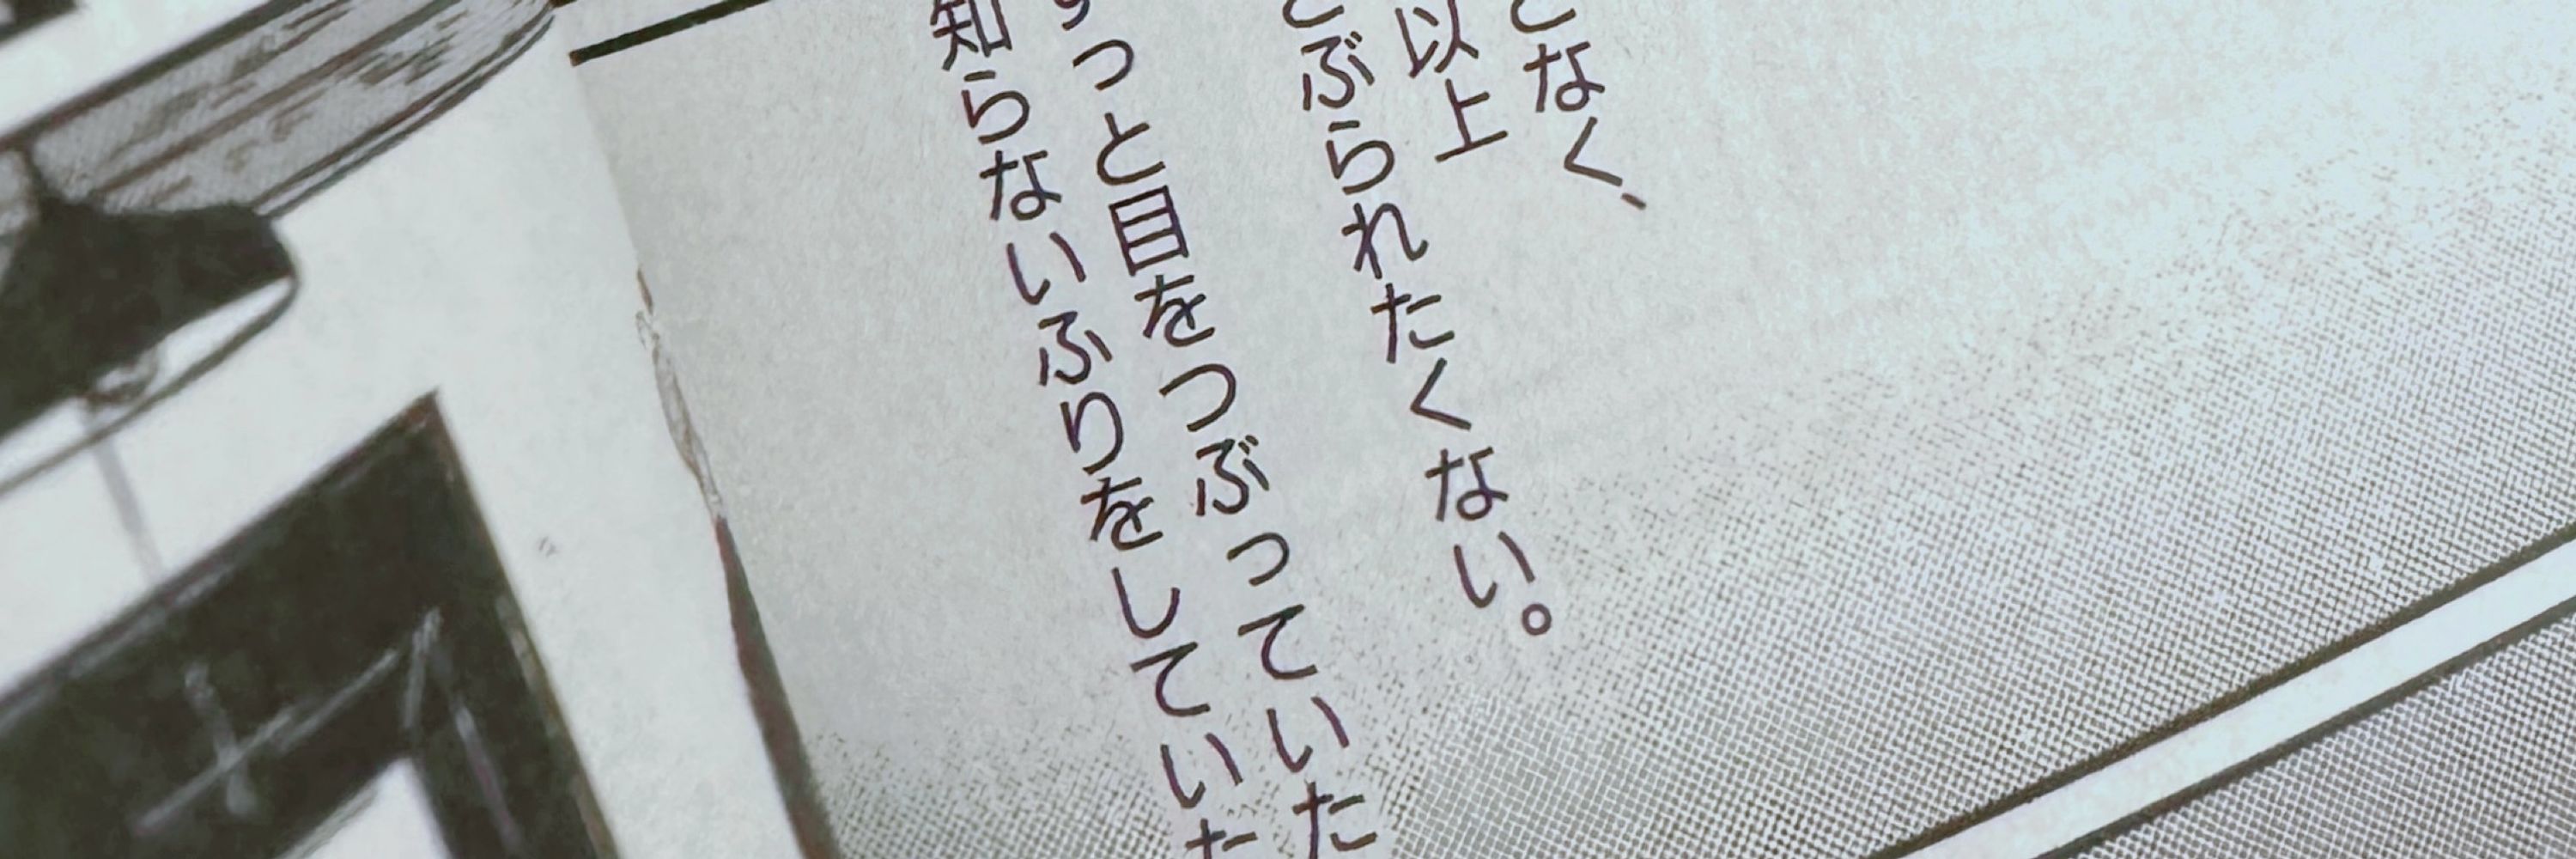 となく、
以上
ぶられたくない。
ずっと目をつぶっていた
知らないふりをしていた